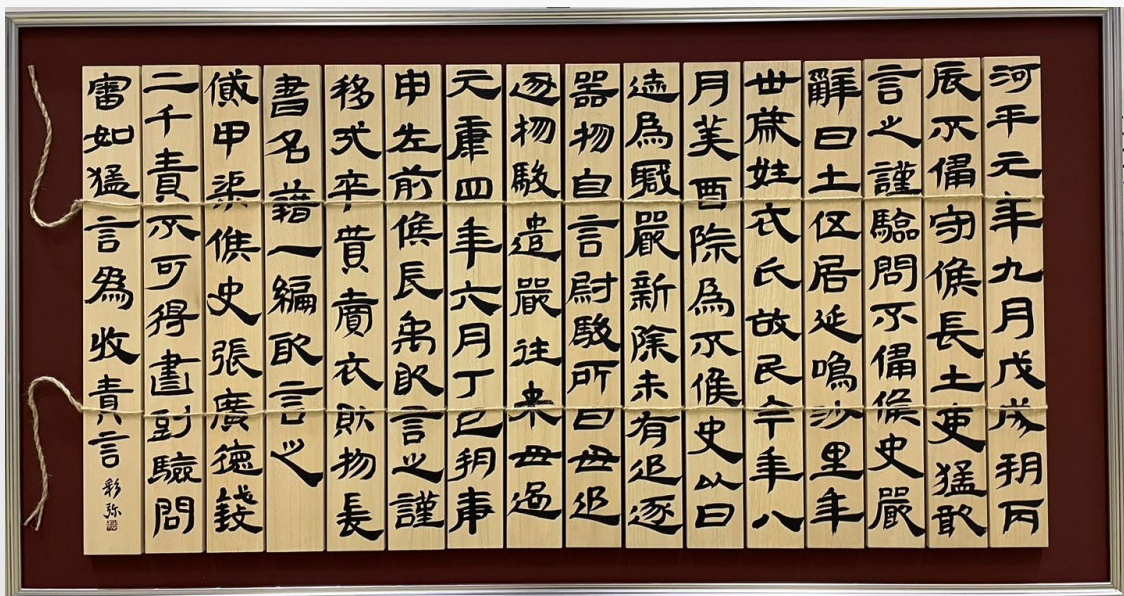 河平元年九月戊戌朔丙
辰不侵守候長士吏猛敢
言之謹驗問不侵候史嚴
辭曰士伍居延鳴沙里年
卅歲姓衣氏故民今年八
月癸酉除為不侵候史以日
迹為職嚴新除未有追逐
器物自言尉駿所曰毋追
逐物駿遣嚴往來毋過
元康四年六月丁巳朔庚
申左前候長禹敢言之謹
移戍卒貰賣衣財物爰
書名籍一編敢言之
貸甲渠候史張廣德錢
二千責不可得書到驗問
審如猛言為收責言
彩弥